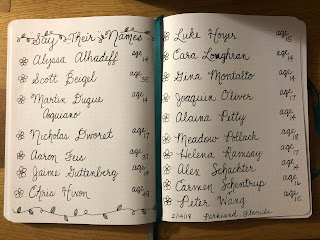 Say Their Names
Alyssa Alhadeff age 14
Scott Beigel age 35
Martin Duque age 14
Anguiano
Nicholas Dworet age 17
Aaron Feis age 37
Jaime Guttenberg age 14
Chris Hixon age 49
Luke Hoyer age 15
Cara Loughran age 14
Gina Montalto age 14
Joaquin Oliver age 17
Alaina Petty age 14
Meadow Pollack age 18
Helena Ramsay age 17
Alex Schachter age 14
Carmen Schentrup age 16
Peter Wang age 15
2/14/18 Parkland, Florida